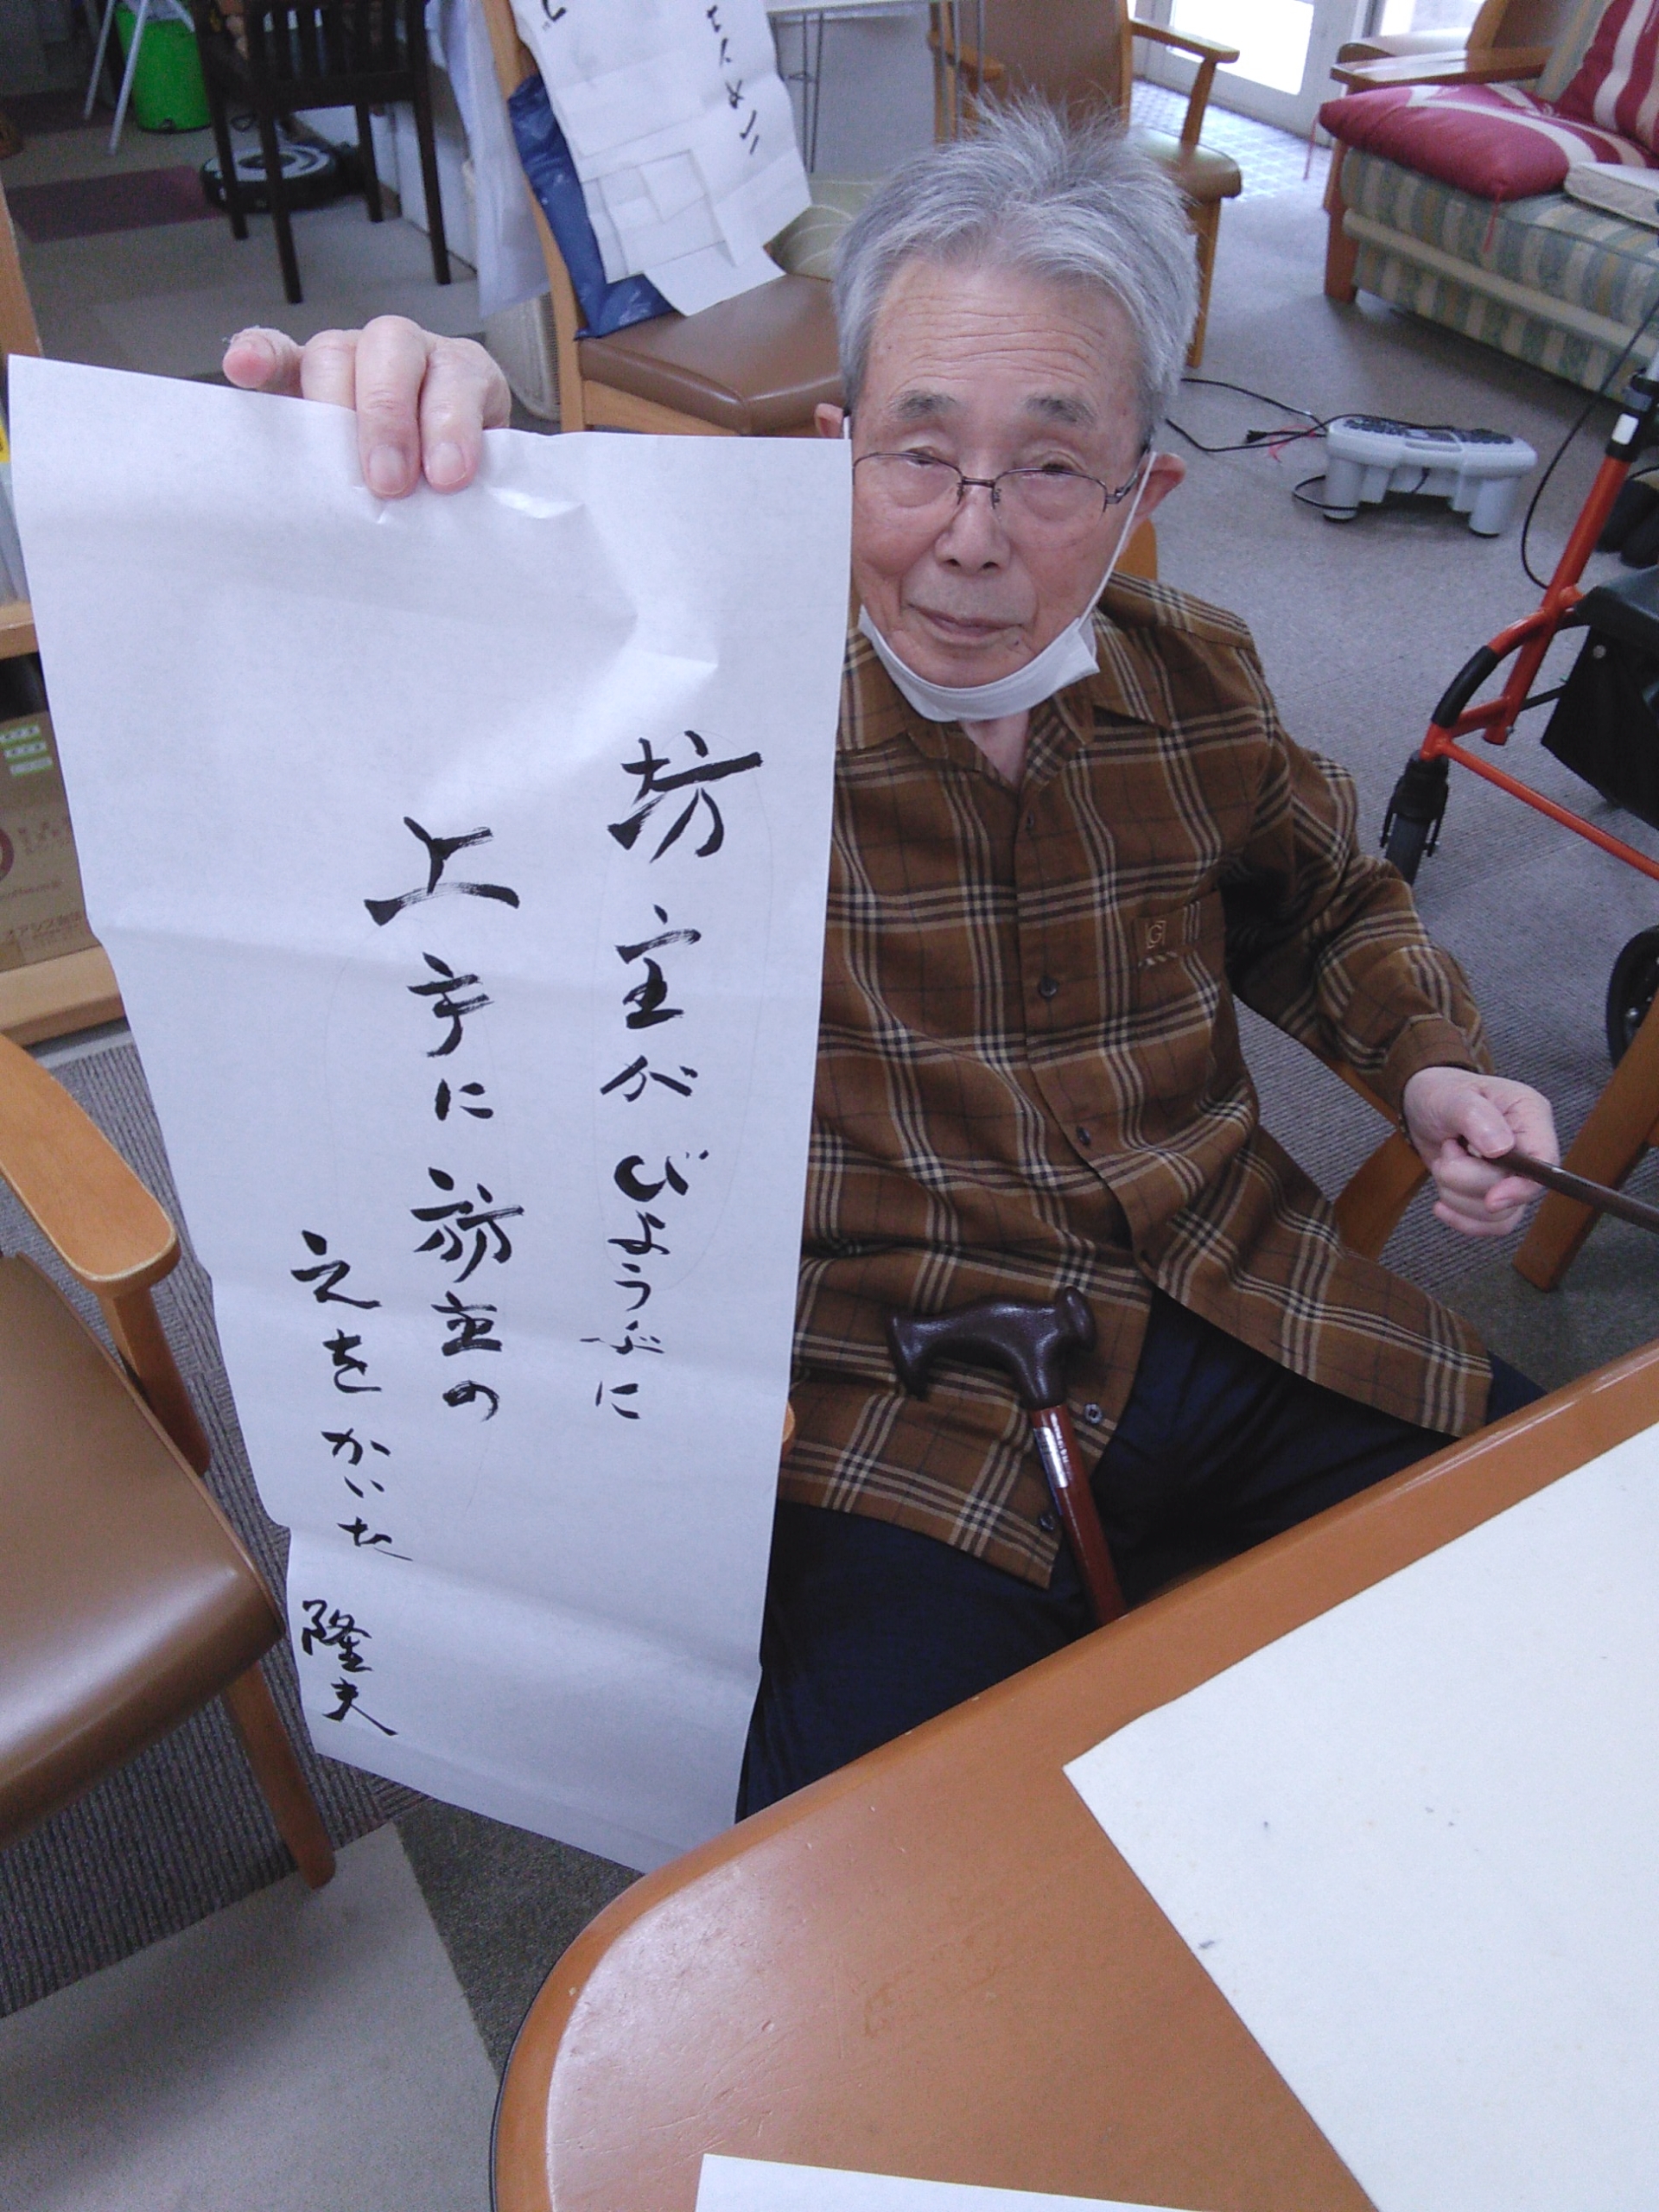 坊主がびようぶに
上手に坊主の
えをかいた
隆夫
G